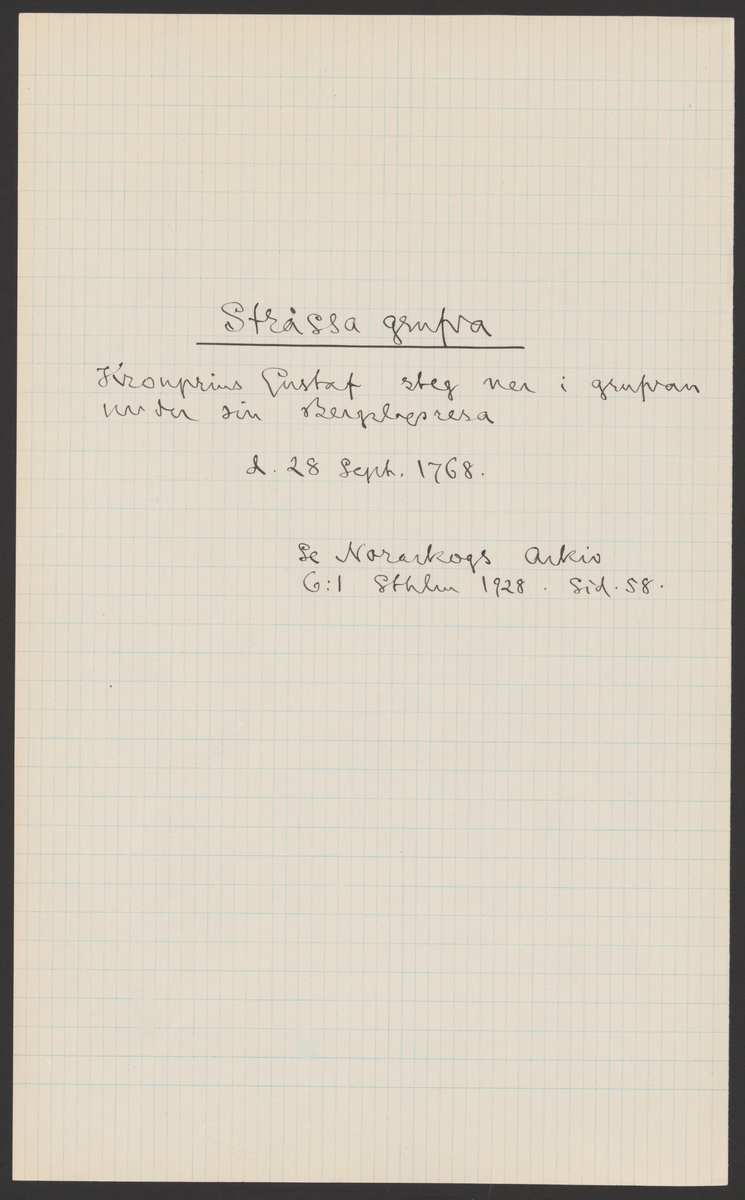 Stråssa grufva
Kronprins Gustaf steg ner i grufvan
under sin Bergslagsresa
d. 28 Sept. 1768.
Se Noraskogs Arkiv
6:1 Sthlm 1928. Sid. 58.